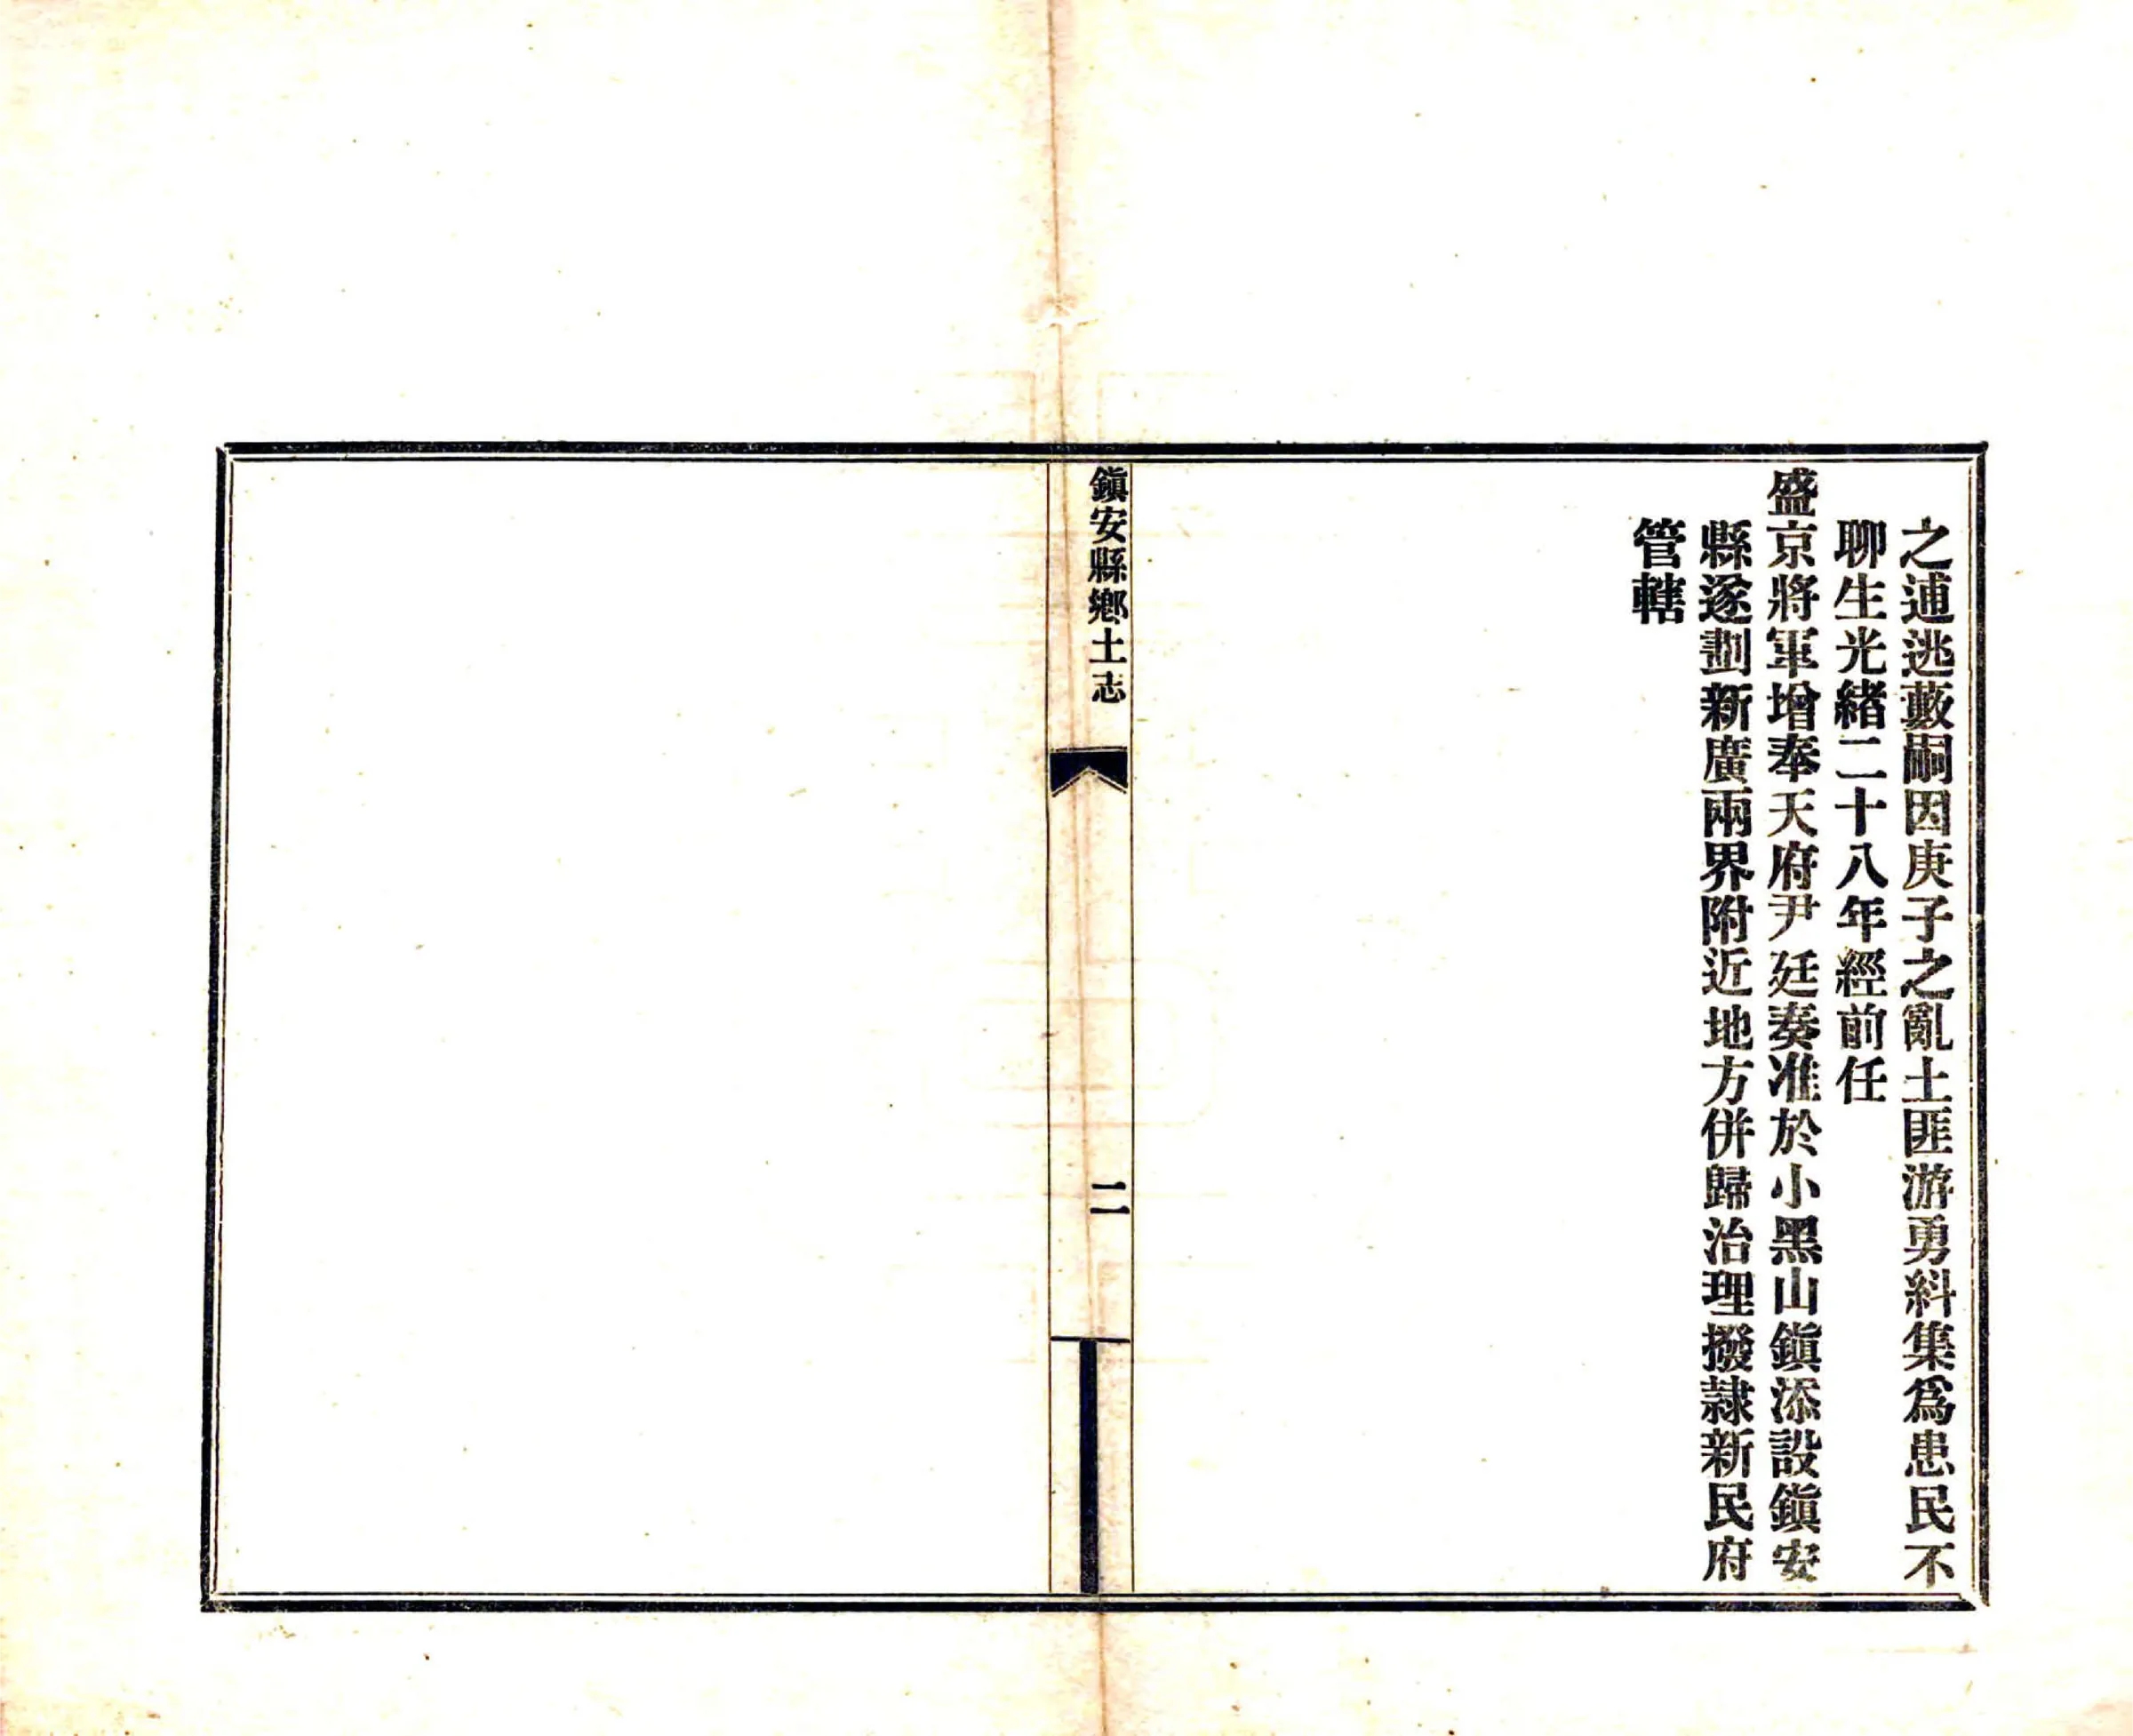 之逋逃藪嗣因庚子之亂土匪游勇糾集爲患民不
聊生光緒二十八年經前任
盛京將軍增奉天府尹廷奏准於小黑山鎭添設鎭安
縣遂劃新廣兩界附近地方併歸治理撥隷新民府
管轄
鎭安縣鄉土志
二